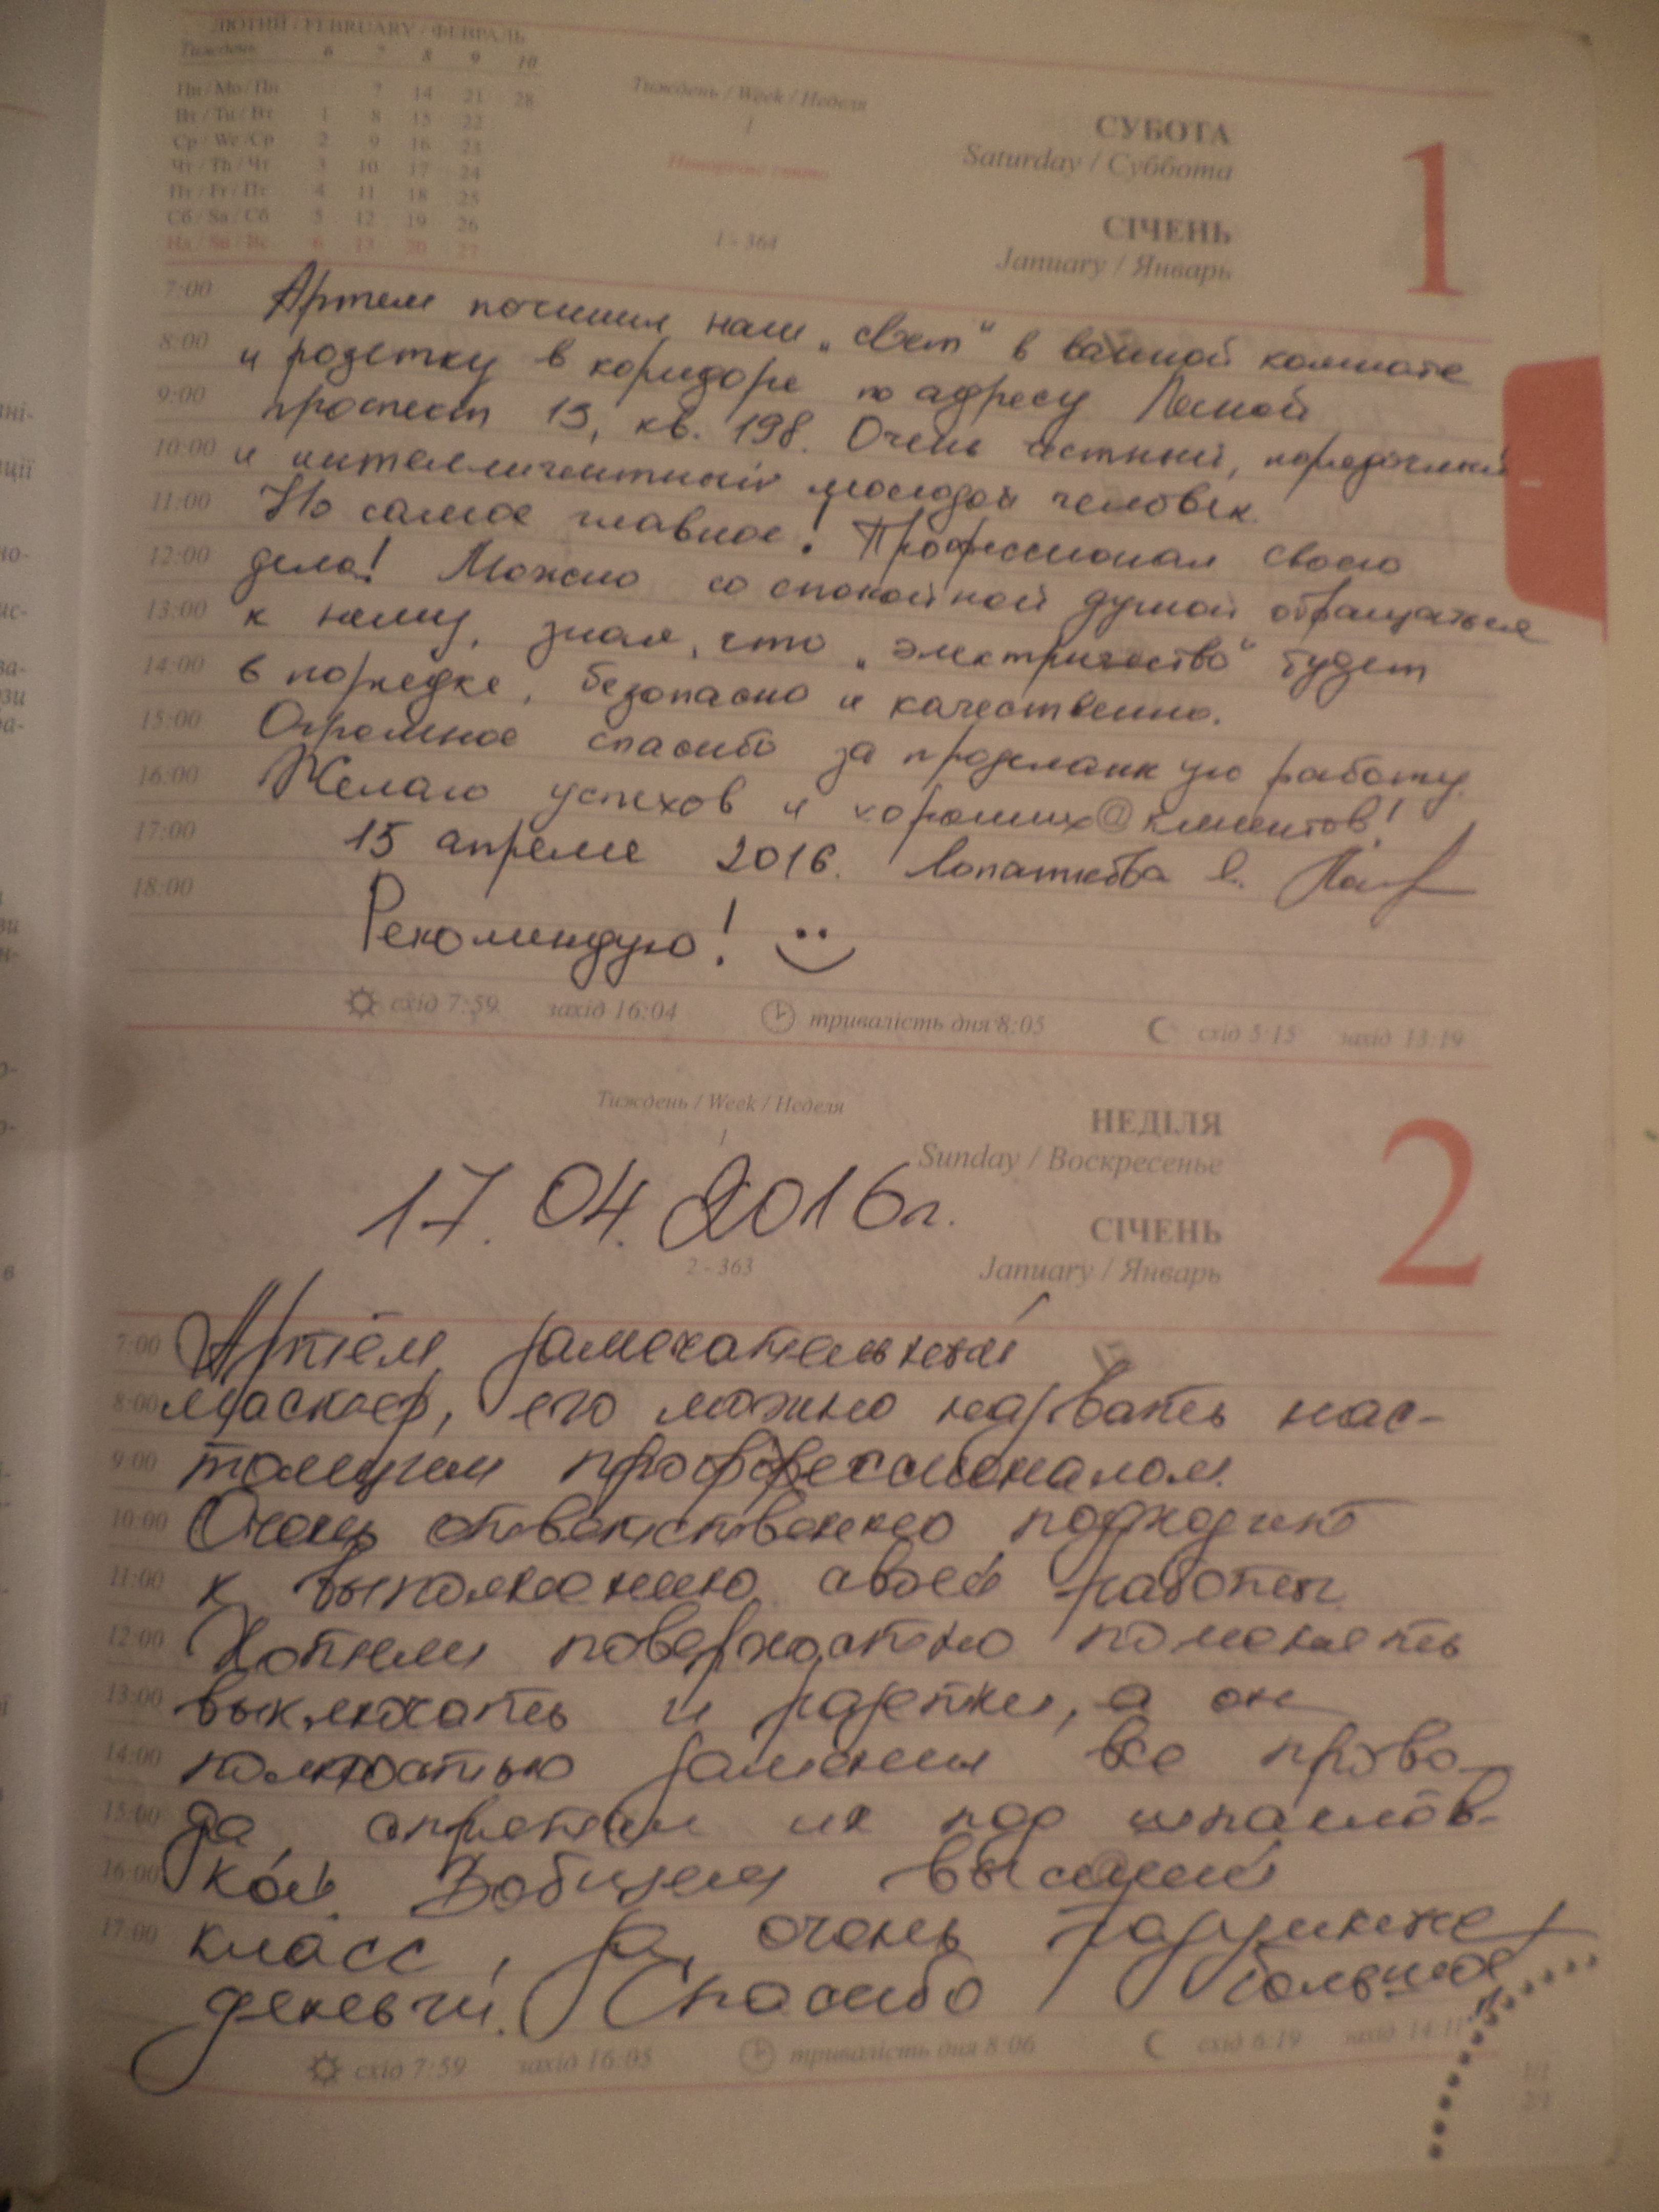 ЛЮТИЙ / FEBRUARY / ФЕВРАЛЬ
Тиждень 6 7 8 9 10
Пн / Mo / Пн 7 14 21 28
Вт / Tu / Вт 1 8 15 22
Ср / We / Ср 2 9 16 23
Чт / Th / Чт 3 10 17 24
Пт / Fr / Пт 4 11 18 25
Сб / Sa / Сб 5 12 19 26
Нд / Su / Вс 6 13 20 27
Тиждень / Week / Неделя
1
Новорічне свято
1 - 364
СУБОТА
Saturday / Суббота
СІЧЕНЬ
January / Январь
1
7:00
8:00
9:00
10:00
11:00
12:00
13:00
14:00
15:00
16:00
17:00
18:00
Артем починил наш „свет" в ванной комнате
и розетку в коридоре по адресу Лесной
проспект 19, кв. 198. Очень честный, порядочный
и интеллигентный молодой человек.
Но самое главное! Профессионал своего
дела! Можно со спокойной душой обращаться
к нему, зная, что „электричество" будет
в порядке, безопасно и качественно.
Огромное спасибо за проделанную работу.
Желаю успехов и хороших клиентов!
15 апреля 2016. Лопаткова
Рекомендую!
схід 7:59 захід 16:04 тривалість дня 8:05 схід 5:15 захід 13:19
Тиждень / Week / Неделя
1
НЕДІЛЯ
Sunday / Воскресенье
СІЧЕНЬ
January / Январь
2
17.04.2016г.
2 - 363
7:00
8:00
9:00
10:00
11:00
12:00
13:00
14:00
15:00
16:00
17:00
Артём замечательный
мастер, его можно назвать нас-
тоящим профессионалом.
Очень ответственно подходит
к выполнению своей работы.
Хотели поверхостно поменять
выключать и разетки, а он
полностью заменил все прово-
да, спрятал их под шпаклёв-
кой. Вобщем высший
класс, за очень разумные
деньги. Спасибо большое
схід 7:59 захід 16:05 тривалість дня 8:06 схід 6:19 захід 14:11